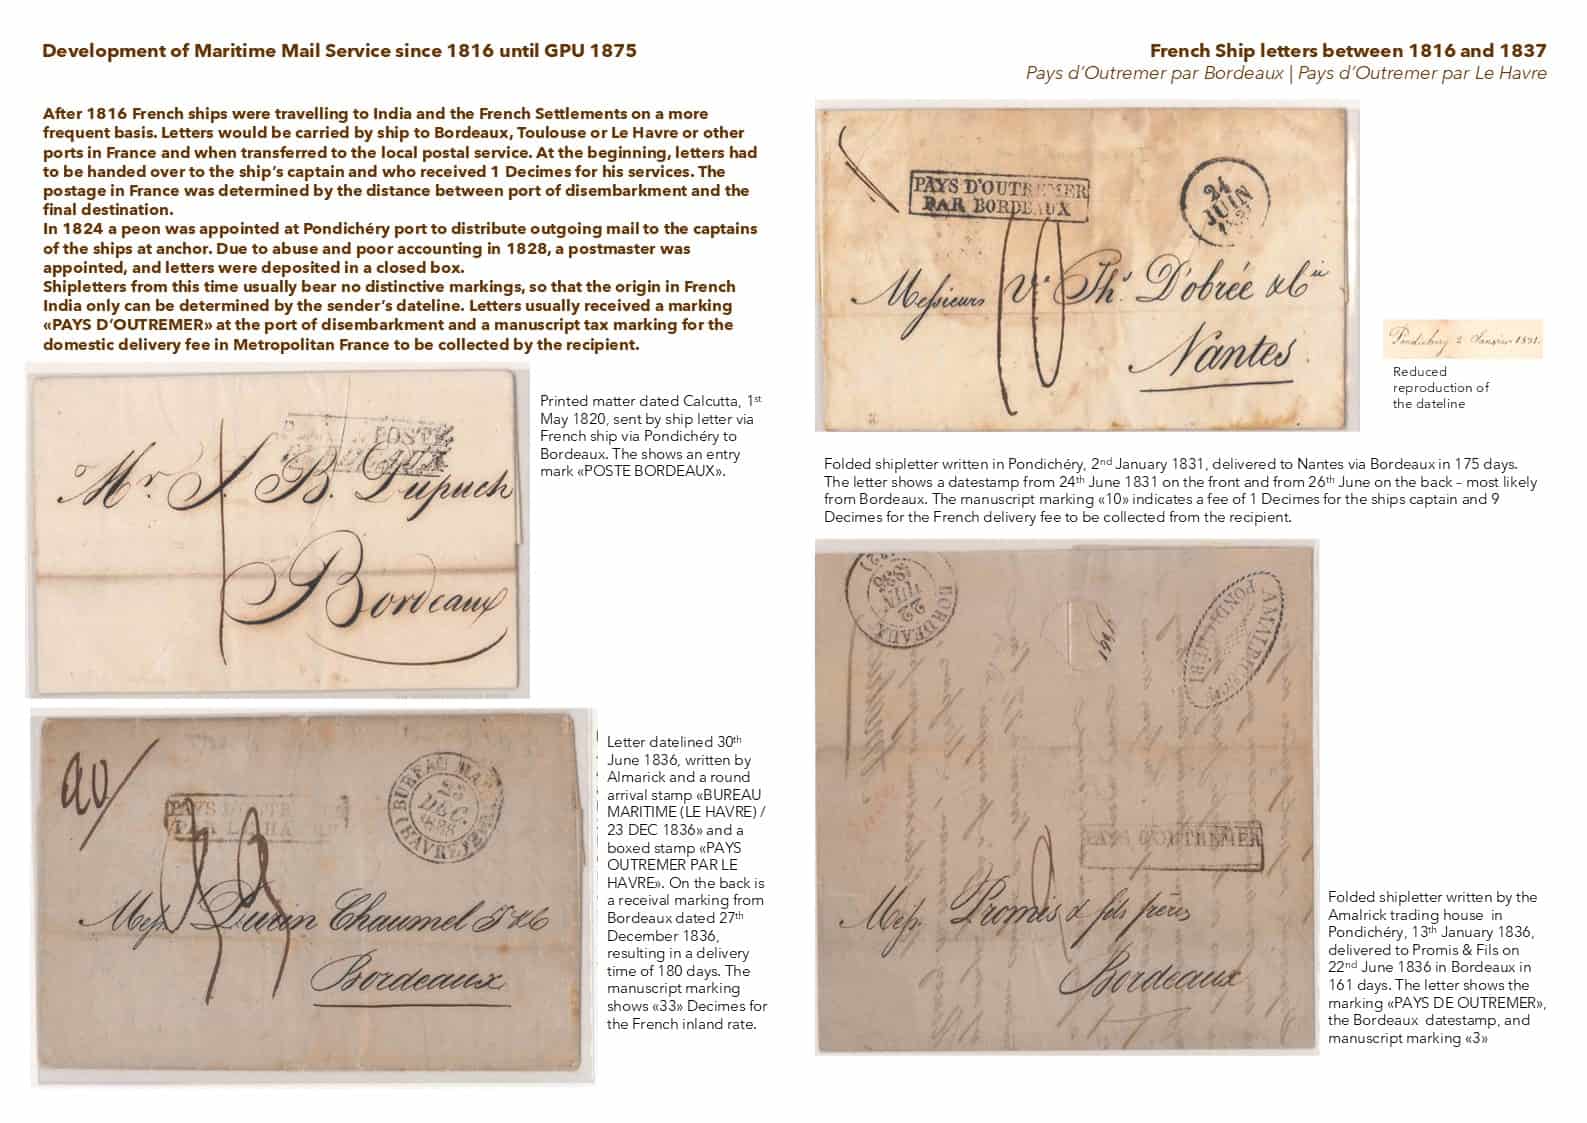 Development of Maritime Mail Service since 1816 until GPU 1875
French Ship letters between 1816 and 1837
Pays d'Outremer par Bordeaux | Pays d'Outremer par Le Havre
After 1816 French ships were travelling to India and the French Settlements on a more
frequent basis. Letters would be carried by ship to Bordeaux, Toulouse or Le Havre or other
ports in France and when transferred to the local postal service. At the beginning, letters had
to be handed over to the ship's captain and who received 1 Decimes for his services. The
postage in France was determined by the distance between port of disembarkment and the
final destination.
In 1824 a peon was appointed at Pondichéry port to distribute outgoing mail to the captains
of the ships at anchor. Due to abuse and poor accounting in 1828, a postmaster was
appointed, and letters were deposited in a closed box.
Shipletters from this time usually bear no distinctive markings, so that the origin in French
India only can be determined by the sender's dateline. Letters usually received a marking
«PAYS D'OUTREMER» at the port of disembarkment and a manuscript tax marking for the
domestic delivery fee in Metropolitan France to be collected by the recipient.
POSTE
Mr. J. B. Dupuch
Bordeaux
Printed matter dated Calcutta, 1st
May 1820, sent by ship letter via
French ship via Pondichéry to
Bordeaux. The shows an entry
mark «POSTE BORDEAUX».
BUREAU MAR
DEC.
(HAVRE
PAYS D'OUTRE
PAR LE HA
33
Mess. Durin Chaumel
Bordeaux
Letter datelined 30th
June 1836, written by
Almarick and a round
arrival stamp «BUREAU
MARITIME (LE HAVRE) /
23 DEC 1836» and a
boxed stamp «PAYS
OUTREMER PAR LE
HAVRE». On the back is
a receival marking from
Bordeaux dated 27th
December 1836,
resulting in a delivery
time of 180 days. The
manuscript marking
shows «33» Decimes for
the French inland rate.
PAYS D'OUTREMER
PAR BORDEAUX
24
JUIN
10
Messieurs Ve Ths. D'obrée & Cie
Nantes
Pondichery 2 Janvier 1831.
Reduced
reproduction of
the dateline
Folded shipletter written in Pondichéry, 2nd January 1831, delivered to Nantes via Bordeaux in 175 days.
The letter shows a datestamp from 24th June 1831 on the front and from 26th June on the back – most likely
from Bordeaux. The manuscript marking «10» indicates a fee of 1 Decimes for the ships captain and 9
Decimes for the French delivery fee to be collected from the recipient.
BORDEAUX
22
JUIN
1836
PONDICHERI
PAYS D'OUTREMER
Mess. Promis & fils frères
Bordeaux
Folded shipletter written by the
Amalrick trading house in
Pondichéry, 13th January 1836,
delivered to Promis & Fils on
22nd June 1836 in Bordeaux in
161 days. The letter shows the
marking «PAYS DE OUTREMER»,
the Bordeaux datestamp, and
manuscript marking «3»